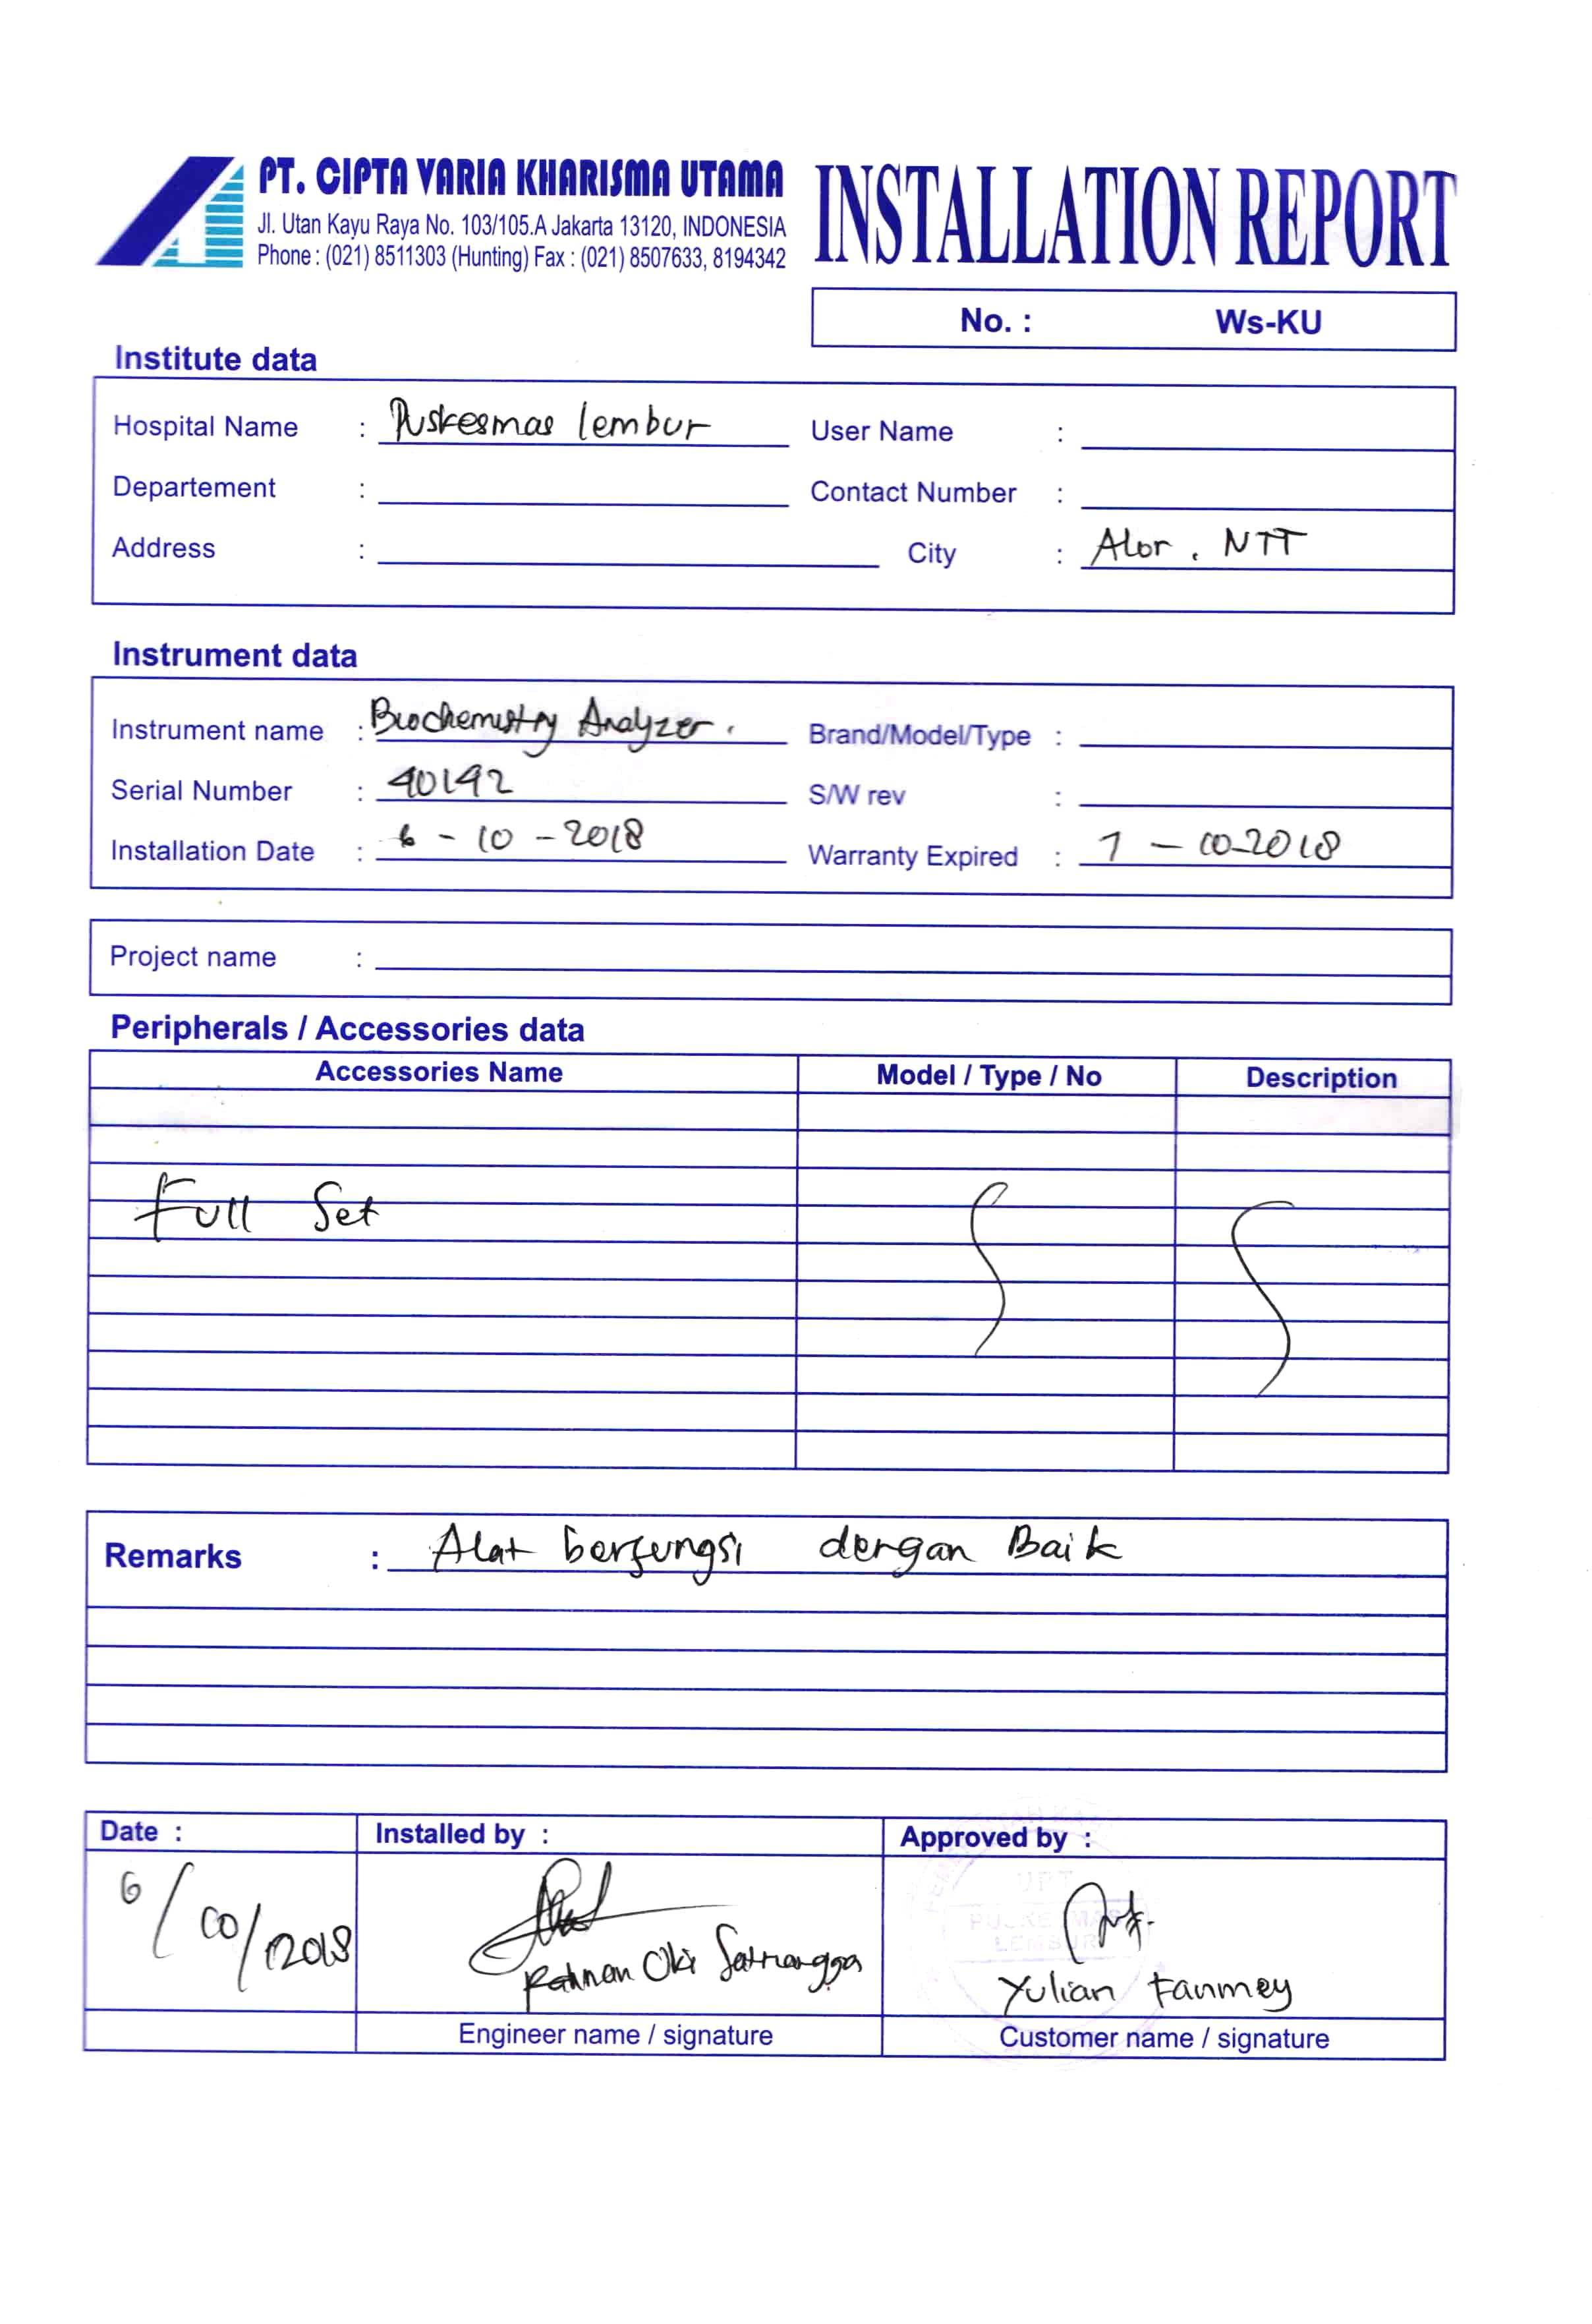 PT. CIPTA VARIA KHARISMA UTAMA
Jl. Utan Kayu Raya No. 103/105.A Jakarta 13120, INDONESIA
Phone : (021) 8511303 (Hunting) Fax : (021) 8507633, 8194342
INSTALLATION REPORT
No. : Ws-KU
Institute data
Hospital Name : Puskesmas lembur User Name :
Departement : Contact Number :
Address : City : Alor . NTT
Instrument data
Instrument name : Biochemistry Analyzer . Brand/Model/Type :
Serial Number : 40192 S/W rev :
Installation Date : 6 - 10 - 2018 Warranty Expired : - 10-2018
Project name :
Peripherals / Accessories data
Accessories Name Model / Type / No Description
Full Set
Remarks : Alat berfungsi dengan Baik
Date : Installed by : Approved by :
6/10/2018 Oki UPT
PUSKESMAS
LEMBUR
Yulian Fanmey
Engineer name / signature Customer name / signature